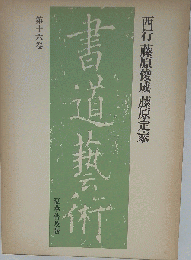 西行 藤原俊成 藤原定家
書道藝術
第十六巻